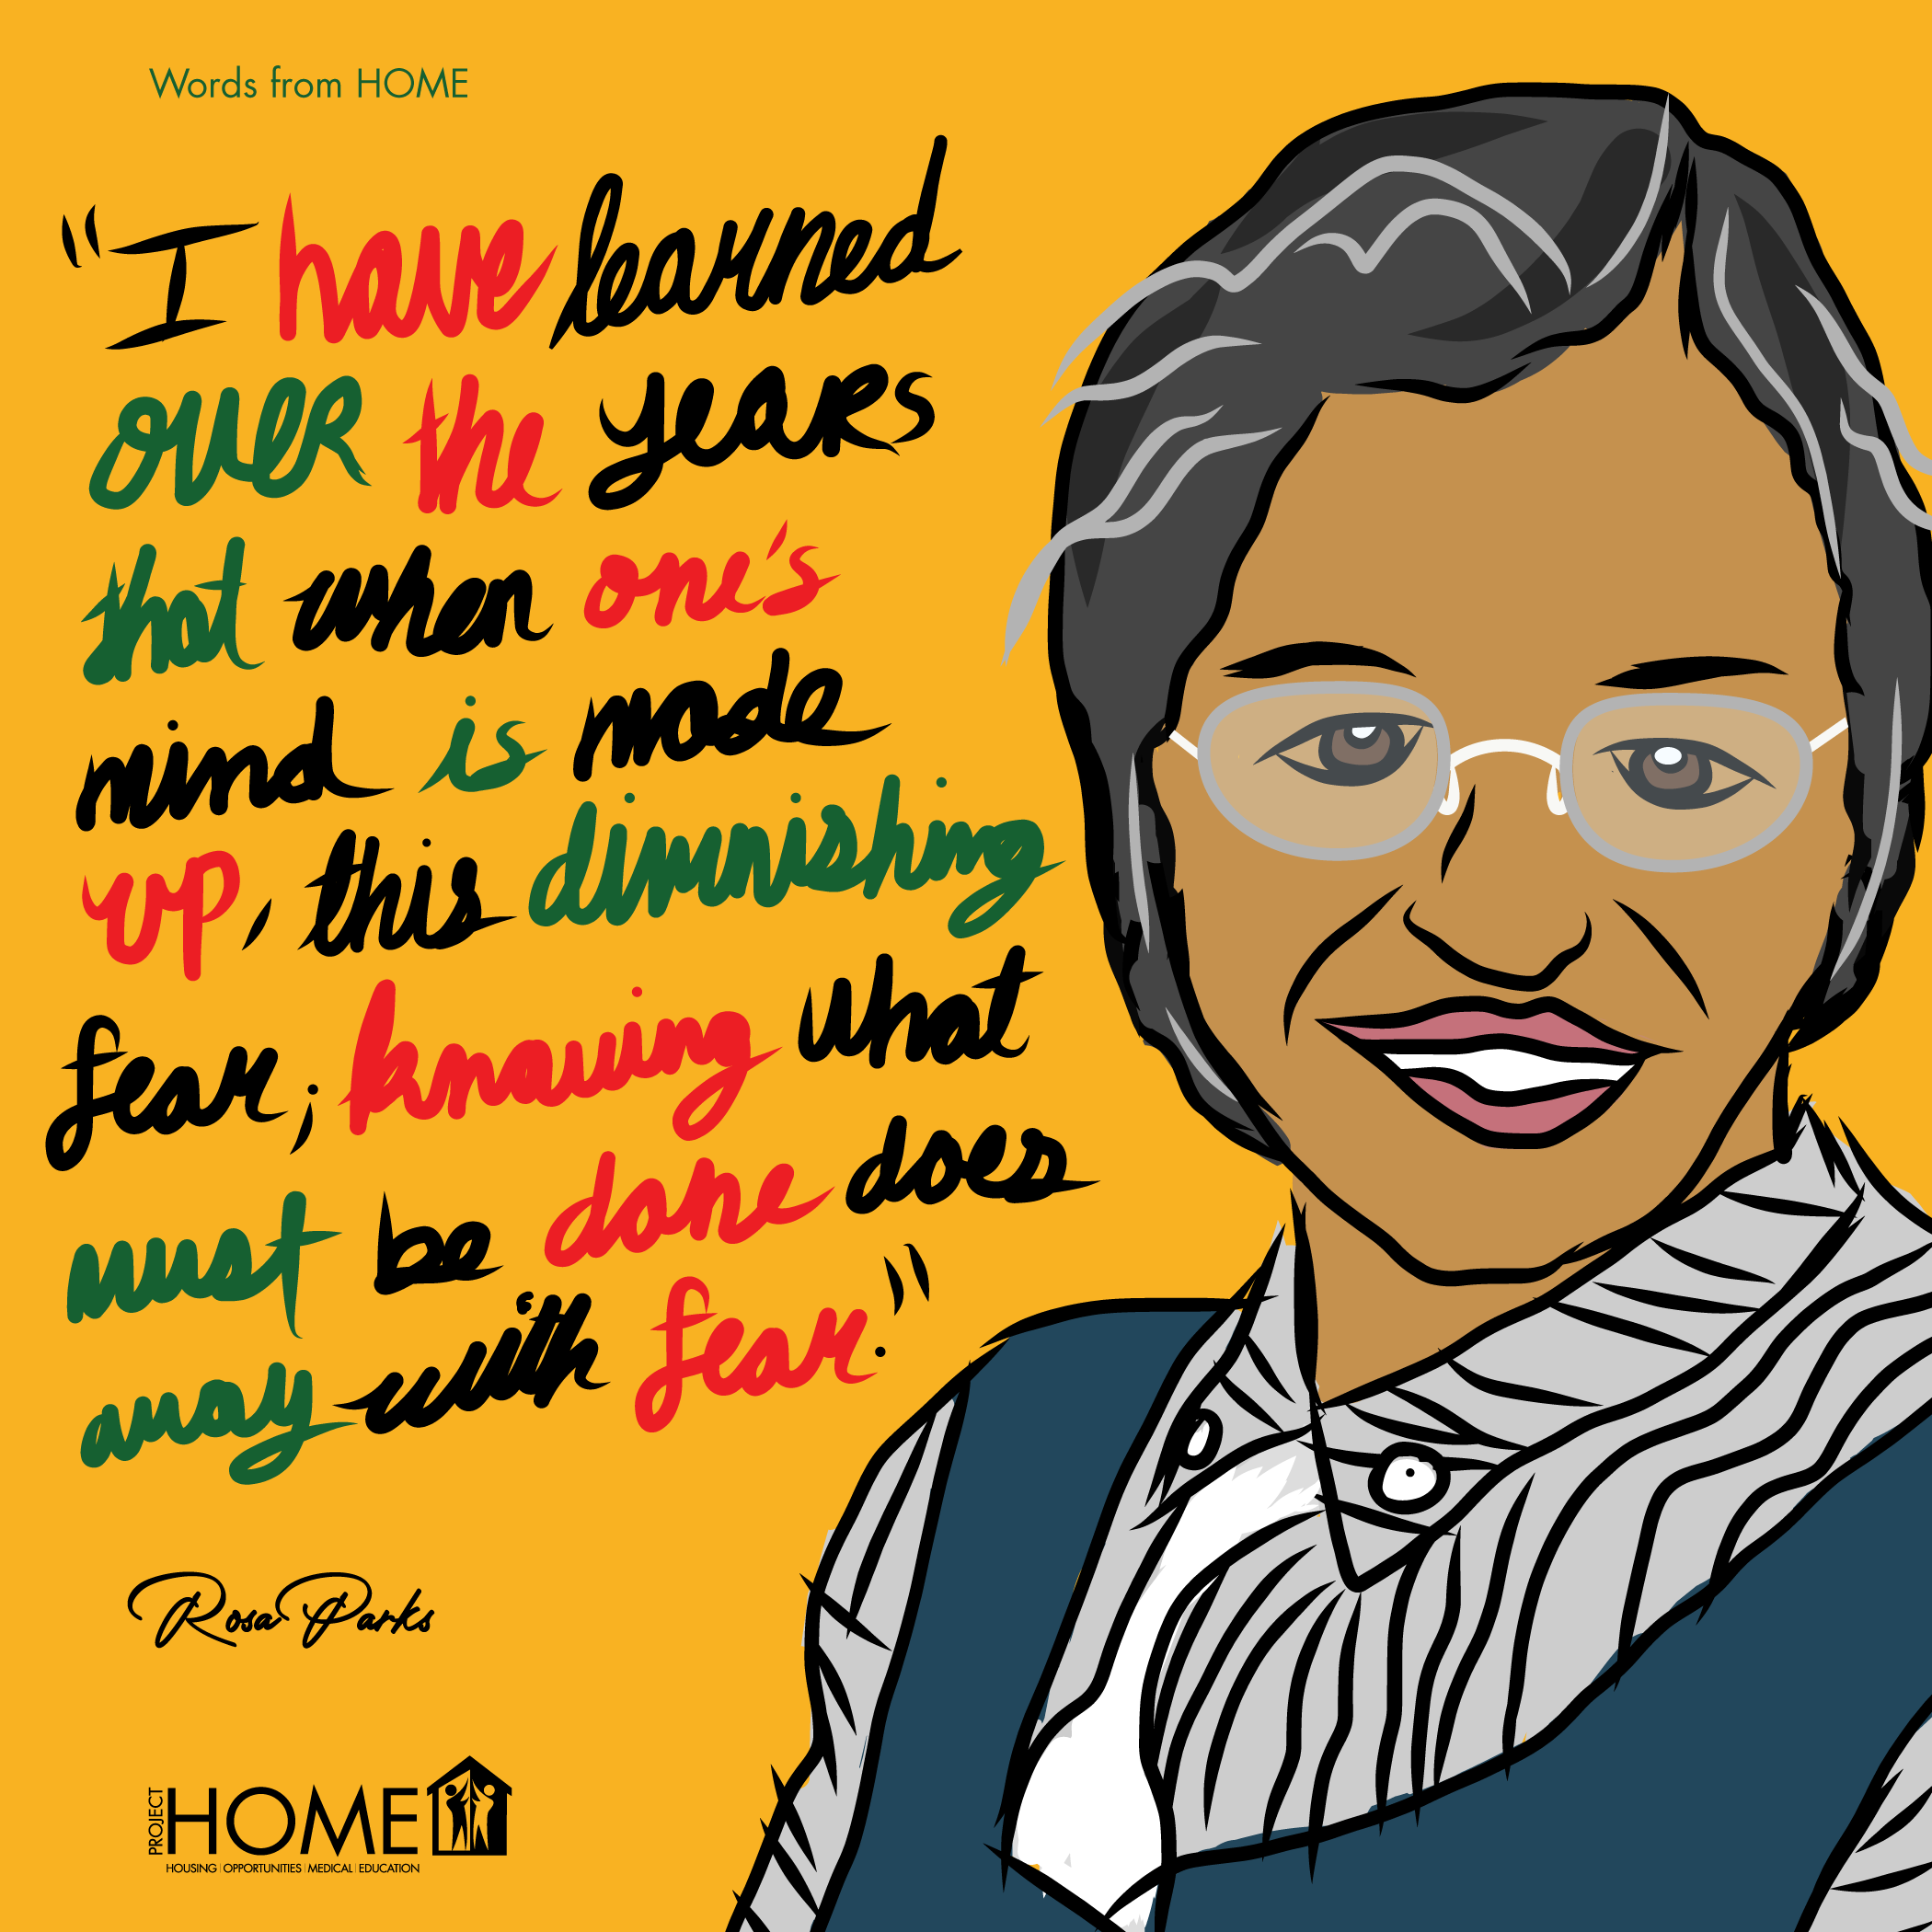 Words from HOME
"I have learned
over the years
that when one's
mind is made
up, this diminishing
fear; knowing what
must be done does
away with fear."
Rosa Parks
PROJECT
HOME
HOUSING | OPPORTUNITIES | MEDICAL | EDUCATION